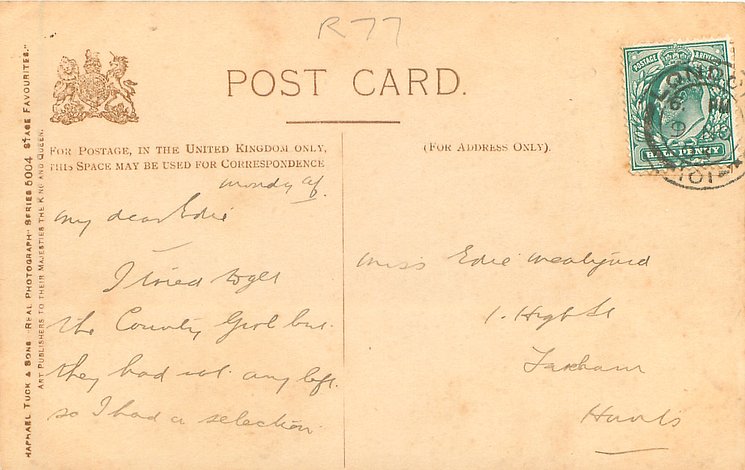 R77
POST CARD.
FOR POSTAGE, IN THE UNITED KINGDOM ONLY,
THIS SPACE MAY BE USED FOR CORRESPONDENCE
(FOR ADDRESS ONLY).
POSTAGE REVENUE
HALF PENNY
LONDON
101
RAPHAEL TUCK & SONS "REAL PHOTOGRAPH" SERIES 5004 STAGE FAVOURITES."
ART PUBLISHERS TO THEIR MAJESTIES THE KING AND QUEEN.
My dear Edie
I tried to get
the County Girl but
they had not any left.
so I had a selection
Miss Edie
1. High St
Fareham
Hants